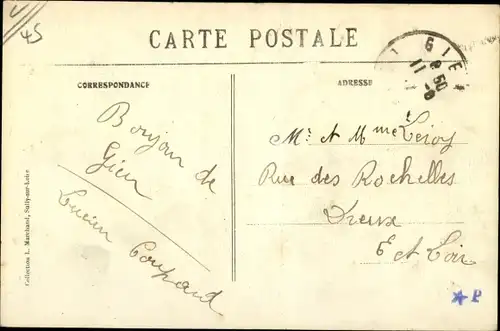 45
CARTE POSTALE
CORRESPONDANCE
ADRESSE
GIE
8 50
11 - 8
Bonjour de
Gien
Lucien Coupard
Mr. et Mme Leroy
Rue des Rochelles
Dreux
E et Loir
Collection L. Marchand, Sully-sur-Loire
P